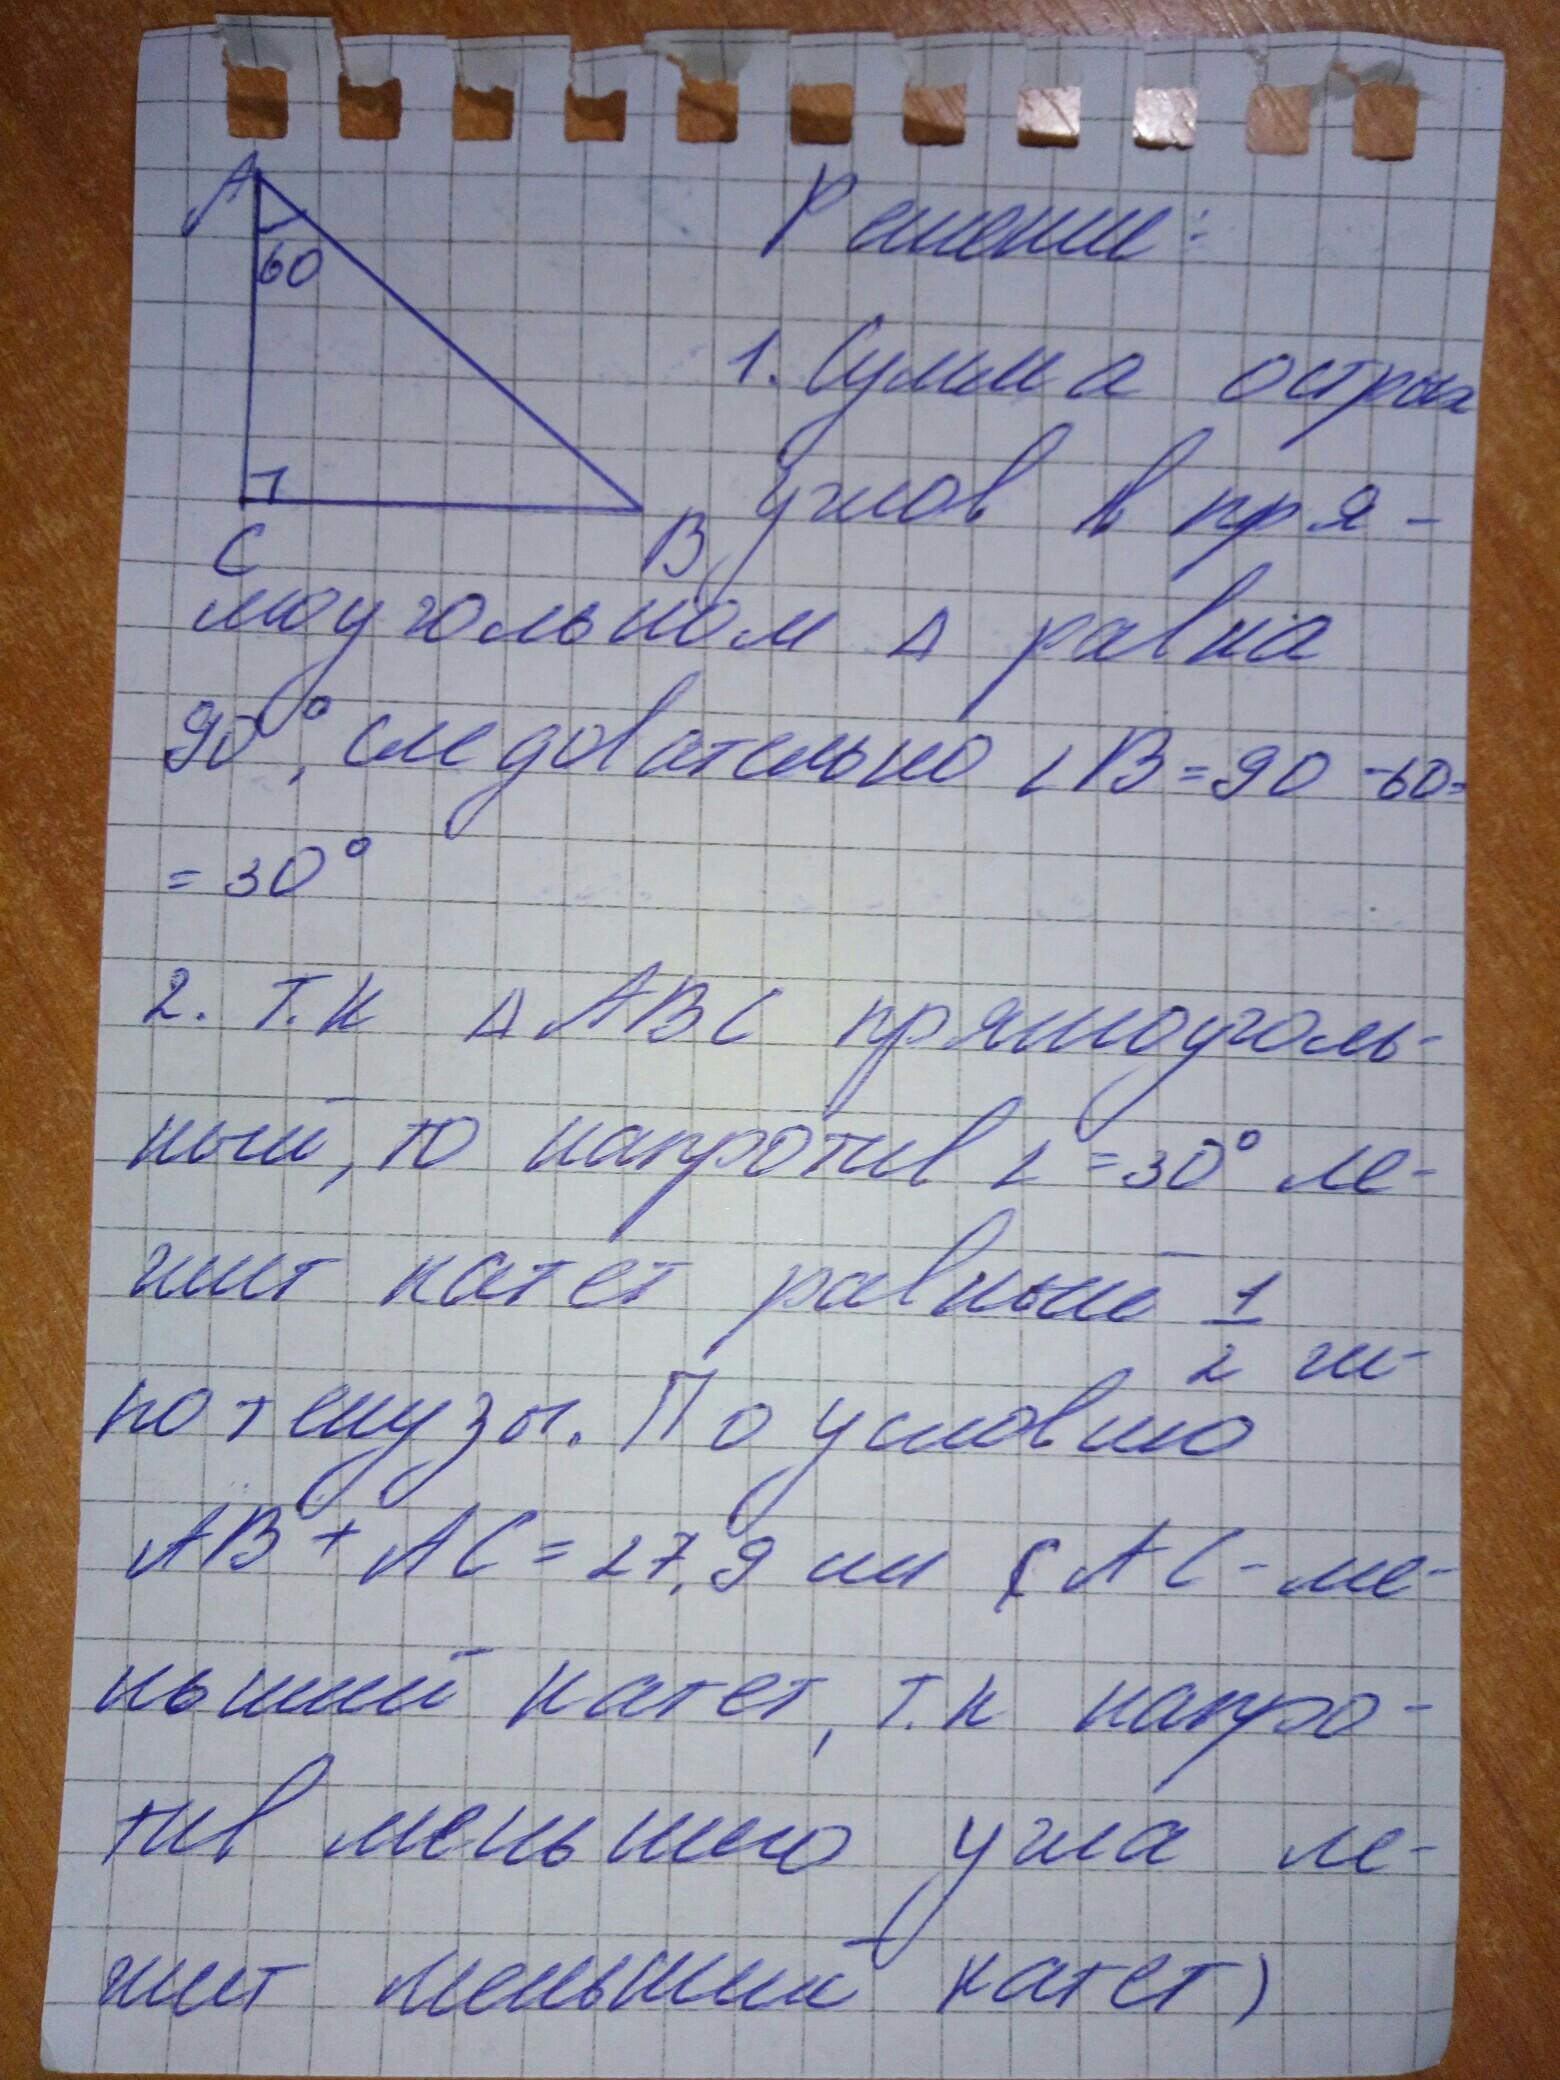 A
60
C
B
Решение:
1. Сумма острых
углов в пря-
моугольном Δ равна
90°, следовательно ∠B=90-60=
=30°
2. Т.к ΔABC прямоуголь-
ный, то напротив ∠=30° ле-
жит катет равный 1/2 ги-
потенузы. По условию
AB+AC=27,9 см (AC-ме-
ньший катет, т.к напро-
тив меньшго угла ле-
жит меньший катет)